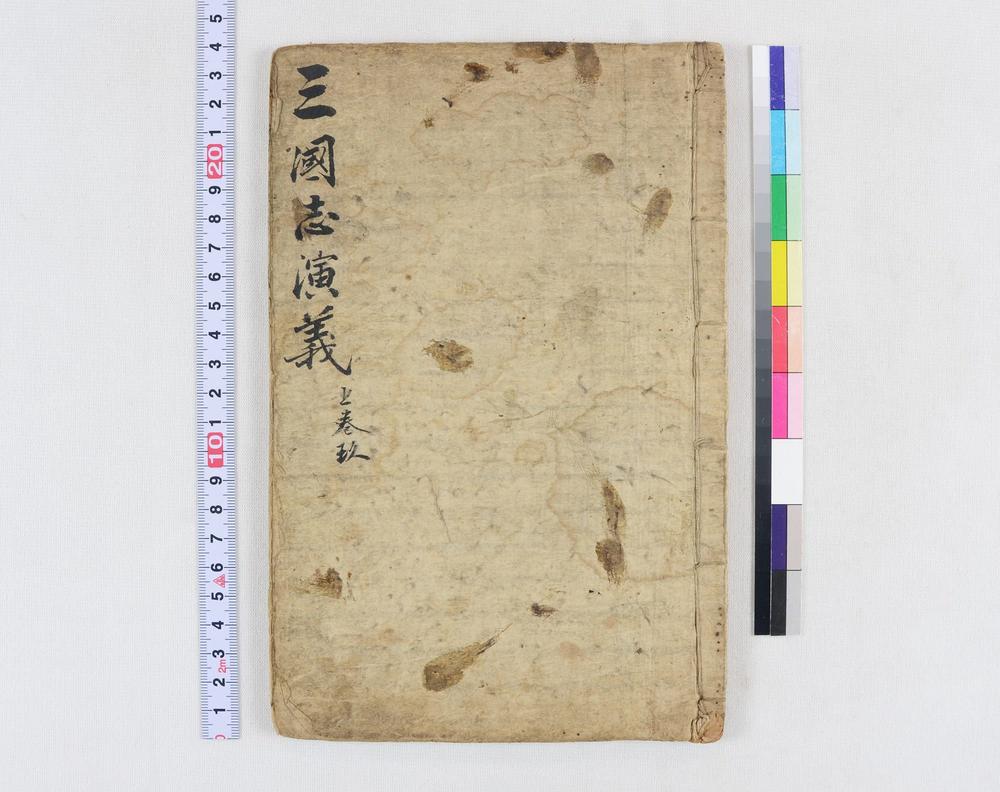 三國志演義
上卷玖
5
4
3
2
1
20
9
8
7
6
5
4
3
2
1
10
9
8
7
6
5
4
3
2m
2
1